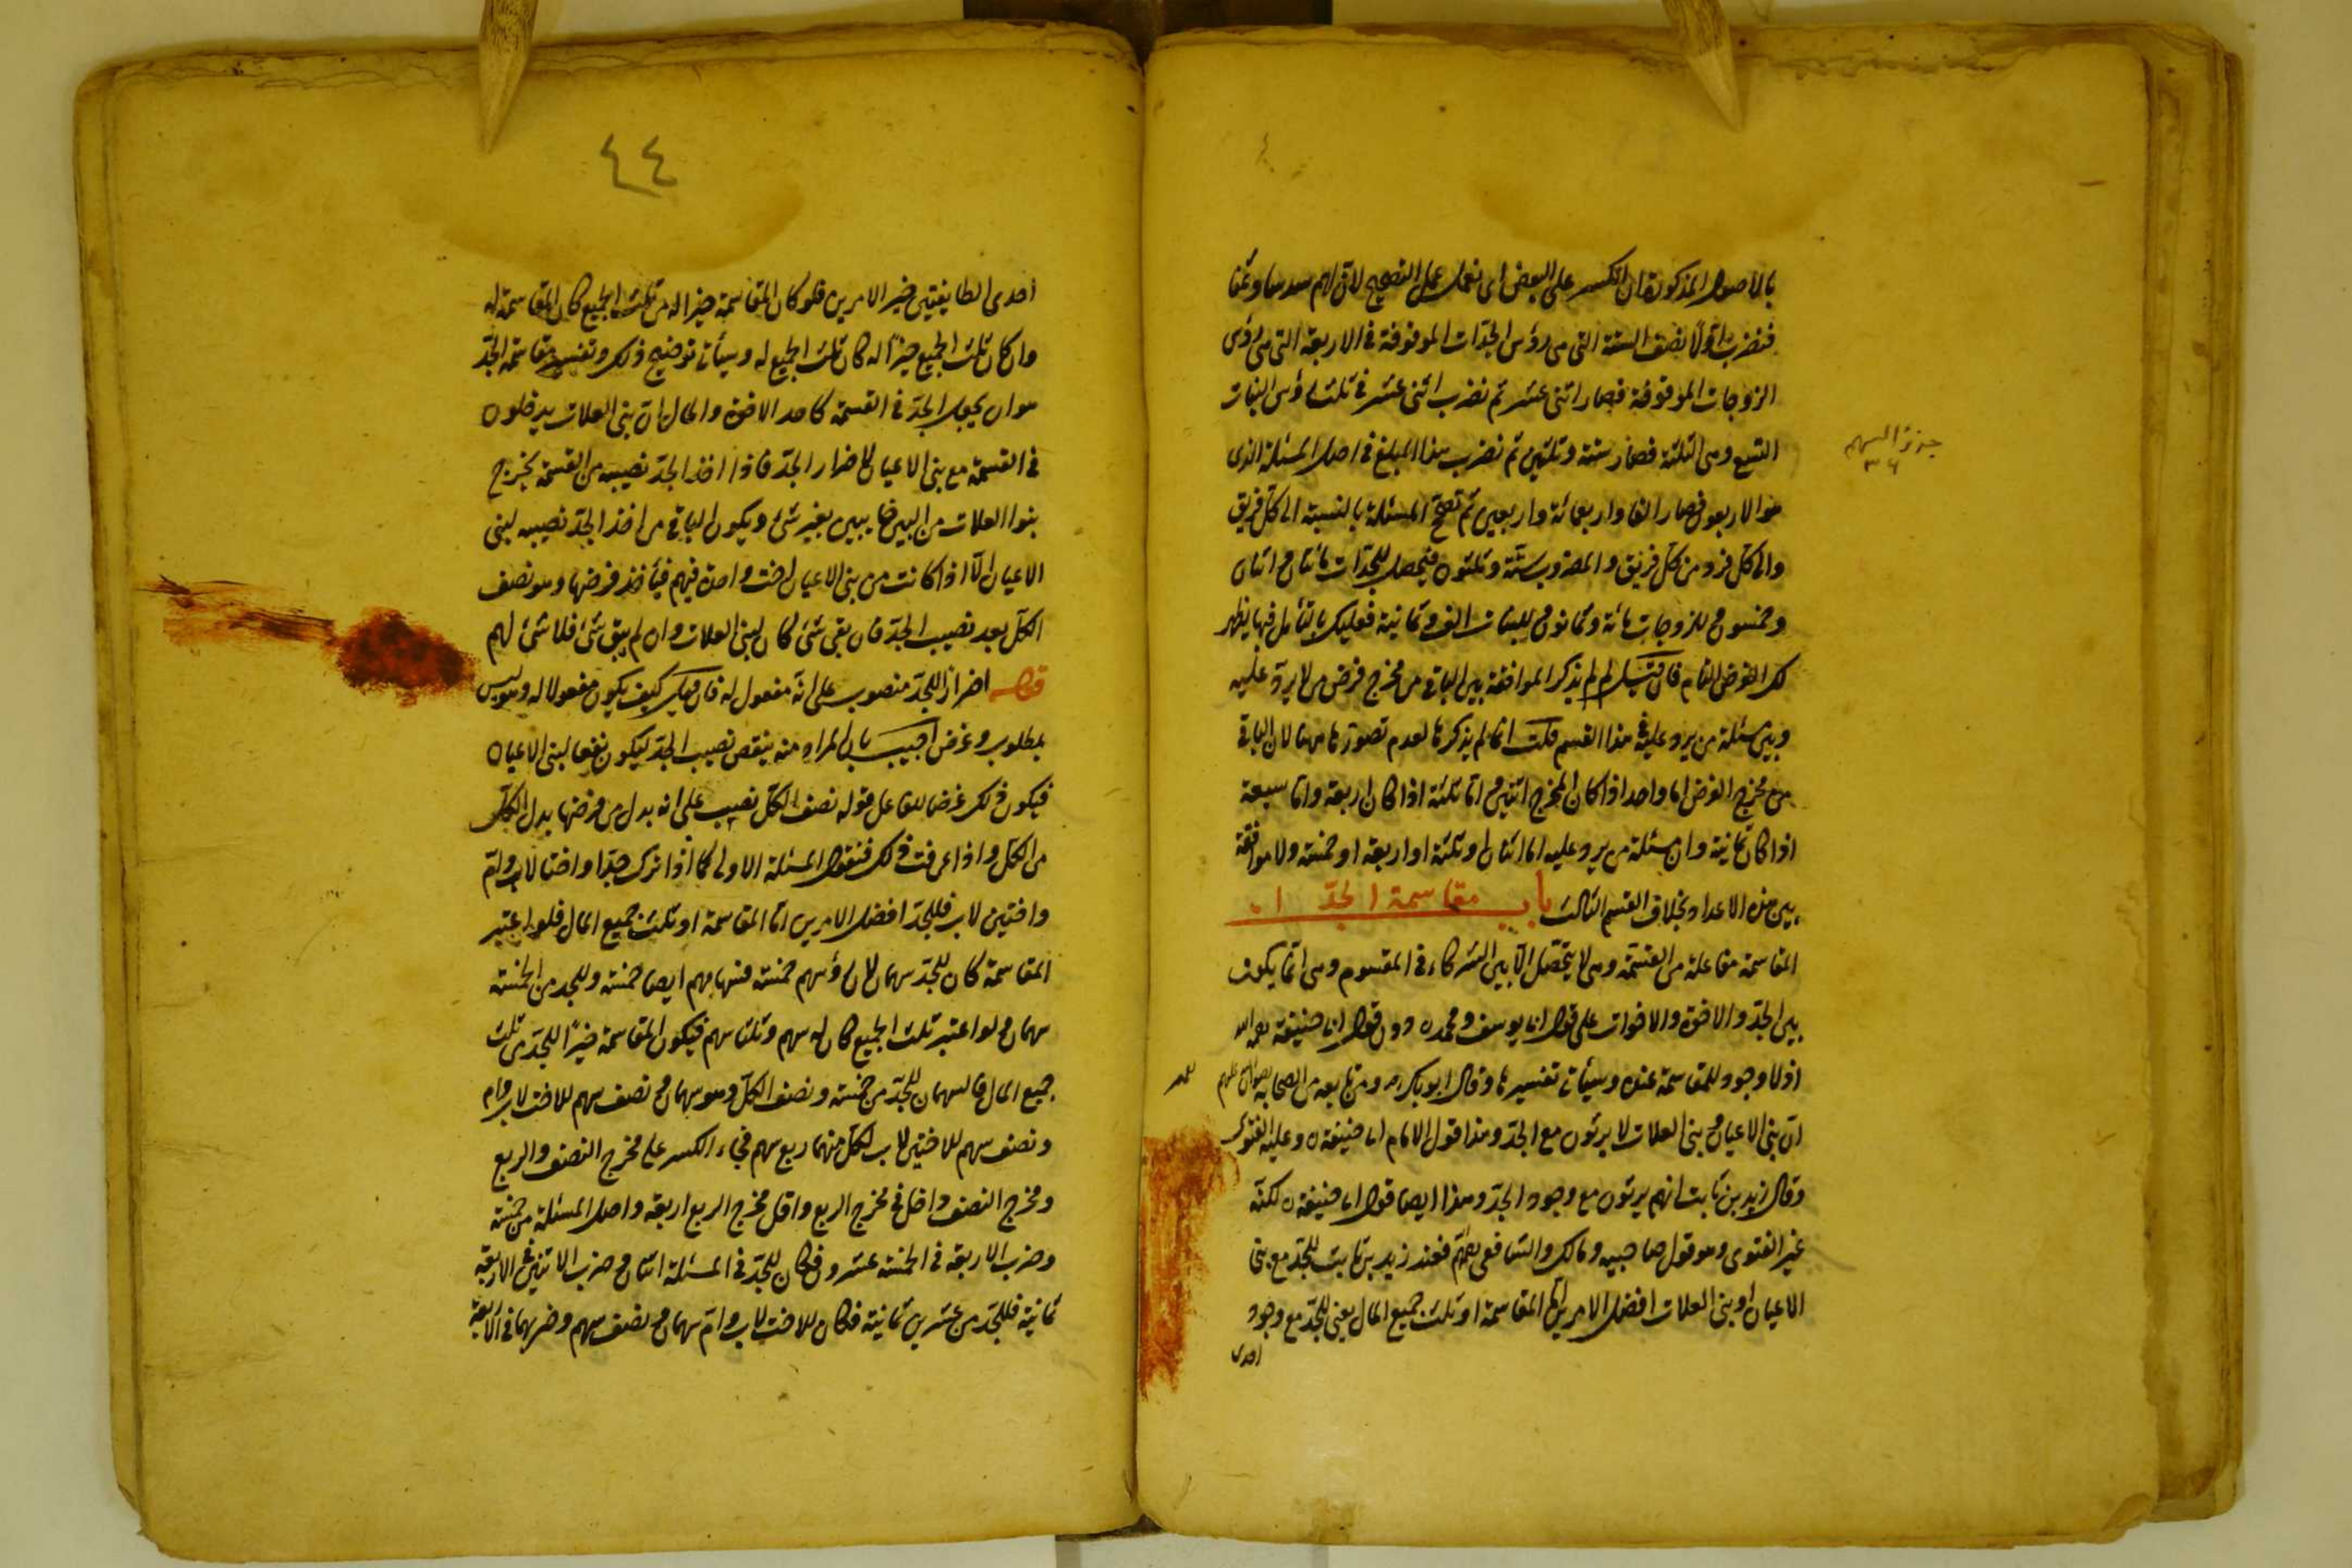 بالاصول المذكورة ان انكسر على البعض اى نعمل عمل التصحيح لان لهم سدسا وثمنا
فنضرب اولا نصف الستة التى هى رؤس الجدات الموقوفة فى الاربعة التى هى رؤس
الزوجات الموقوفة فصار اثنى عشر ثم نضرب اثنى عشر فى ثلث رؤس البنات
التسع وهى الثلثة فصار ستة وثلثين ثم نضرب هذا المبلغ فى اصل المسئلة الذى
هو الاربعون فصار الفا واربعمائة واربعين ثم تصح المسئلة بالنسبة الى كل فريق
والى كل فرد من كل فريق والمضروب ستة وثلثون فيحصل للجدات مائتان واثنان
وخمسون وللزوجات مائة وثمانون وللبنات الف وثمانية فعليك بالتأمل فيها يظهر
لك الغرض التام فان قيل لم لم يذكر الموافقة بين الباقى من مخرج فرض من لا يرد عليه
وبين مسئلة من يرد عليه فى هذا القسم قلت انما لم يذكرها لعدم تصورها ههنا لان الباقى
من مخرج الفرض اما واحد اذا كان المخرج اثنين واما ثلثة اذا كان اربعة واما سبعة
اذا كان ثمانية وان مسئلة من يرد عليه اما اثنان او ثلثة او اربعة او خمسة ولا موافقة
بين هذه الاعداد بخلاف القسم الثالث باب مقاسمة الجد
المقاسمة مفاعلة من القسمة وهى لا يتحصل الا بين الشركاء فى المقسوم وهى انما يكون
بين الجد والاخوة والاخوات على قول ابى يوسف ومحمد دون قول ابى حنيفة رحمه الله
اذ لا وجود للمقاسمة عنده وسيأتى تفسيرها وقال ابو بكر ومن تابعه من الصحابة رضوان الله عليهم
ان بنى الاعيان وبنى العلات لا يرثون مع الجد وهذا قول الامام ابى حنيفة وعليه الفتوى
وقال زيد بن ثابت انهم يرثون مع وجود الجد وهذا ايضا قول ابى حنيفة لكنه
غير الفتوى وهو قول صاحبيه ومالك والشافعى فعند زيد بن ثابت للجد مع بنى
الاعيان او بنى العلات افضل الامرين اما المقاسمة او ثلث جميع المال يعنى للجد مع وجود
احدى
جزؤ السهم
٣٦
٤٤
احدى الطايفتين خير الامرين فلو كان المقاسمة خيرا له من ثلث الجميع كان المقاسمة له
وان كان ثلث الجميع خيرا له كان ثلث الجميع له وسيأتى توضيح ذلك وتفسير مقاسمة الجد
هو ان يجعل الجد فى القسمة كاحد الاخوة والحال ان بنى العلات يدخلون
فى القسمة مع بنى الاعيان لاضرار الجد فاذا اخذ الجد نصيبه من القسمة يخرج
بنوا العلات من البين خايبين بغير شئ ويكون الباقى من اخذ الجد نصيبه لبنى
الاعيان الا اذا كانت من بنى الاعيان اخت واحدة فيهم فيأخذ فرضها وهو نصف
الكل بعد نصيب الجد فان بقى شئ كان لبنى العلات وان لم يبق شئ فلا شئ لهم
قوله اضرارا للجد منصوب على انه مفعول له فان قيل كيف يكون مفعولا له وهو ليس
بمطلوب وغرض اجيب بان المراد منه ينقص نصيب الجد ليكون نفعا لبنى الاعيان
فيكون ذلك غرضا للفاعل قوله نصف الكل نصب على انه بدل من فرضها بدل الكل
من الكل واذا عرفت ذلك فنقول المسئلة الاولى كما اذا ترك جدا واختا لاب وام
واختين لاب فللجد افضل الامرين اما المقاسمة او ثلث جميع المال فلو اعتبر
المقاسمة كان للجد سهمان لان رؤسهم خمسة فسهامهم ايضا خمسة وللجد من الخمسة
سهمان ولو اعتبر ثلث الجميع كان له سهم وثلثا سهم فيكون المقاسمة خيرا للجد من ثلث
جميع المال فالسهمان للجد من خمسة ونصف الكل وهو سهمان ونصف سهم للاخت لاب وام
ونصف سهم للاختين لاب لكل منهما ربع سهم فجاء الكسر على مخرج النصف والربع
ومخرج النصف داخل فى مخرج الربع واقل مخرج الربع اربعة واصل المسئلة من خمسة
وضرب الاربعة فى الخمسة عشرون فكان للجد فى المسئلة اثنان وضرب الاثنين فى الاربعة
ثمانية فللجد من عشرين ثمانية فكان للاخت لاب وام سهمان ونصف سهم وضربهما فى الاربعة